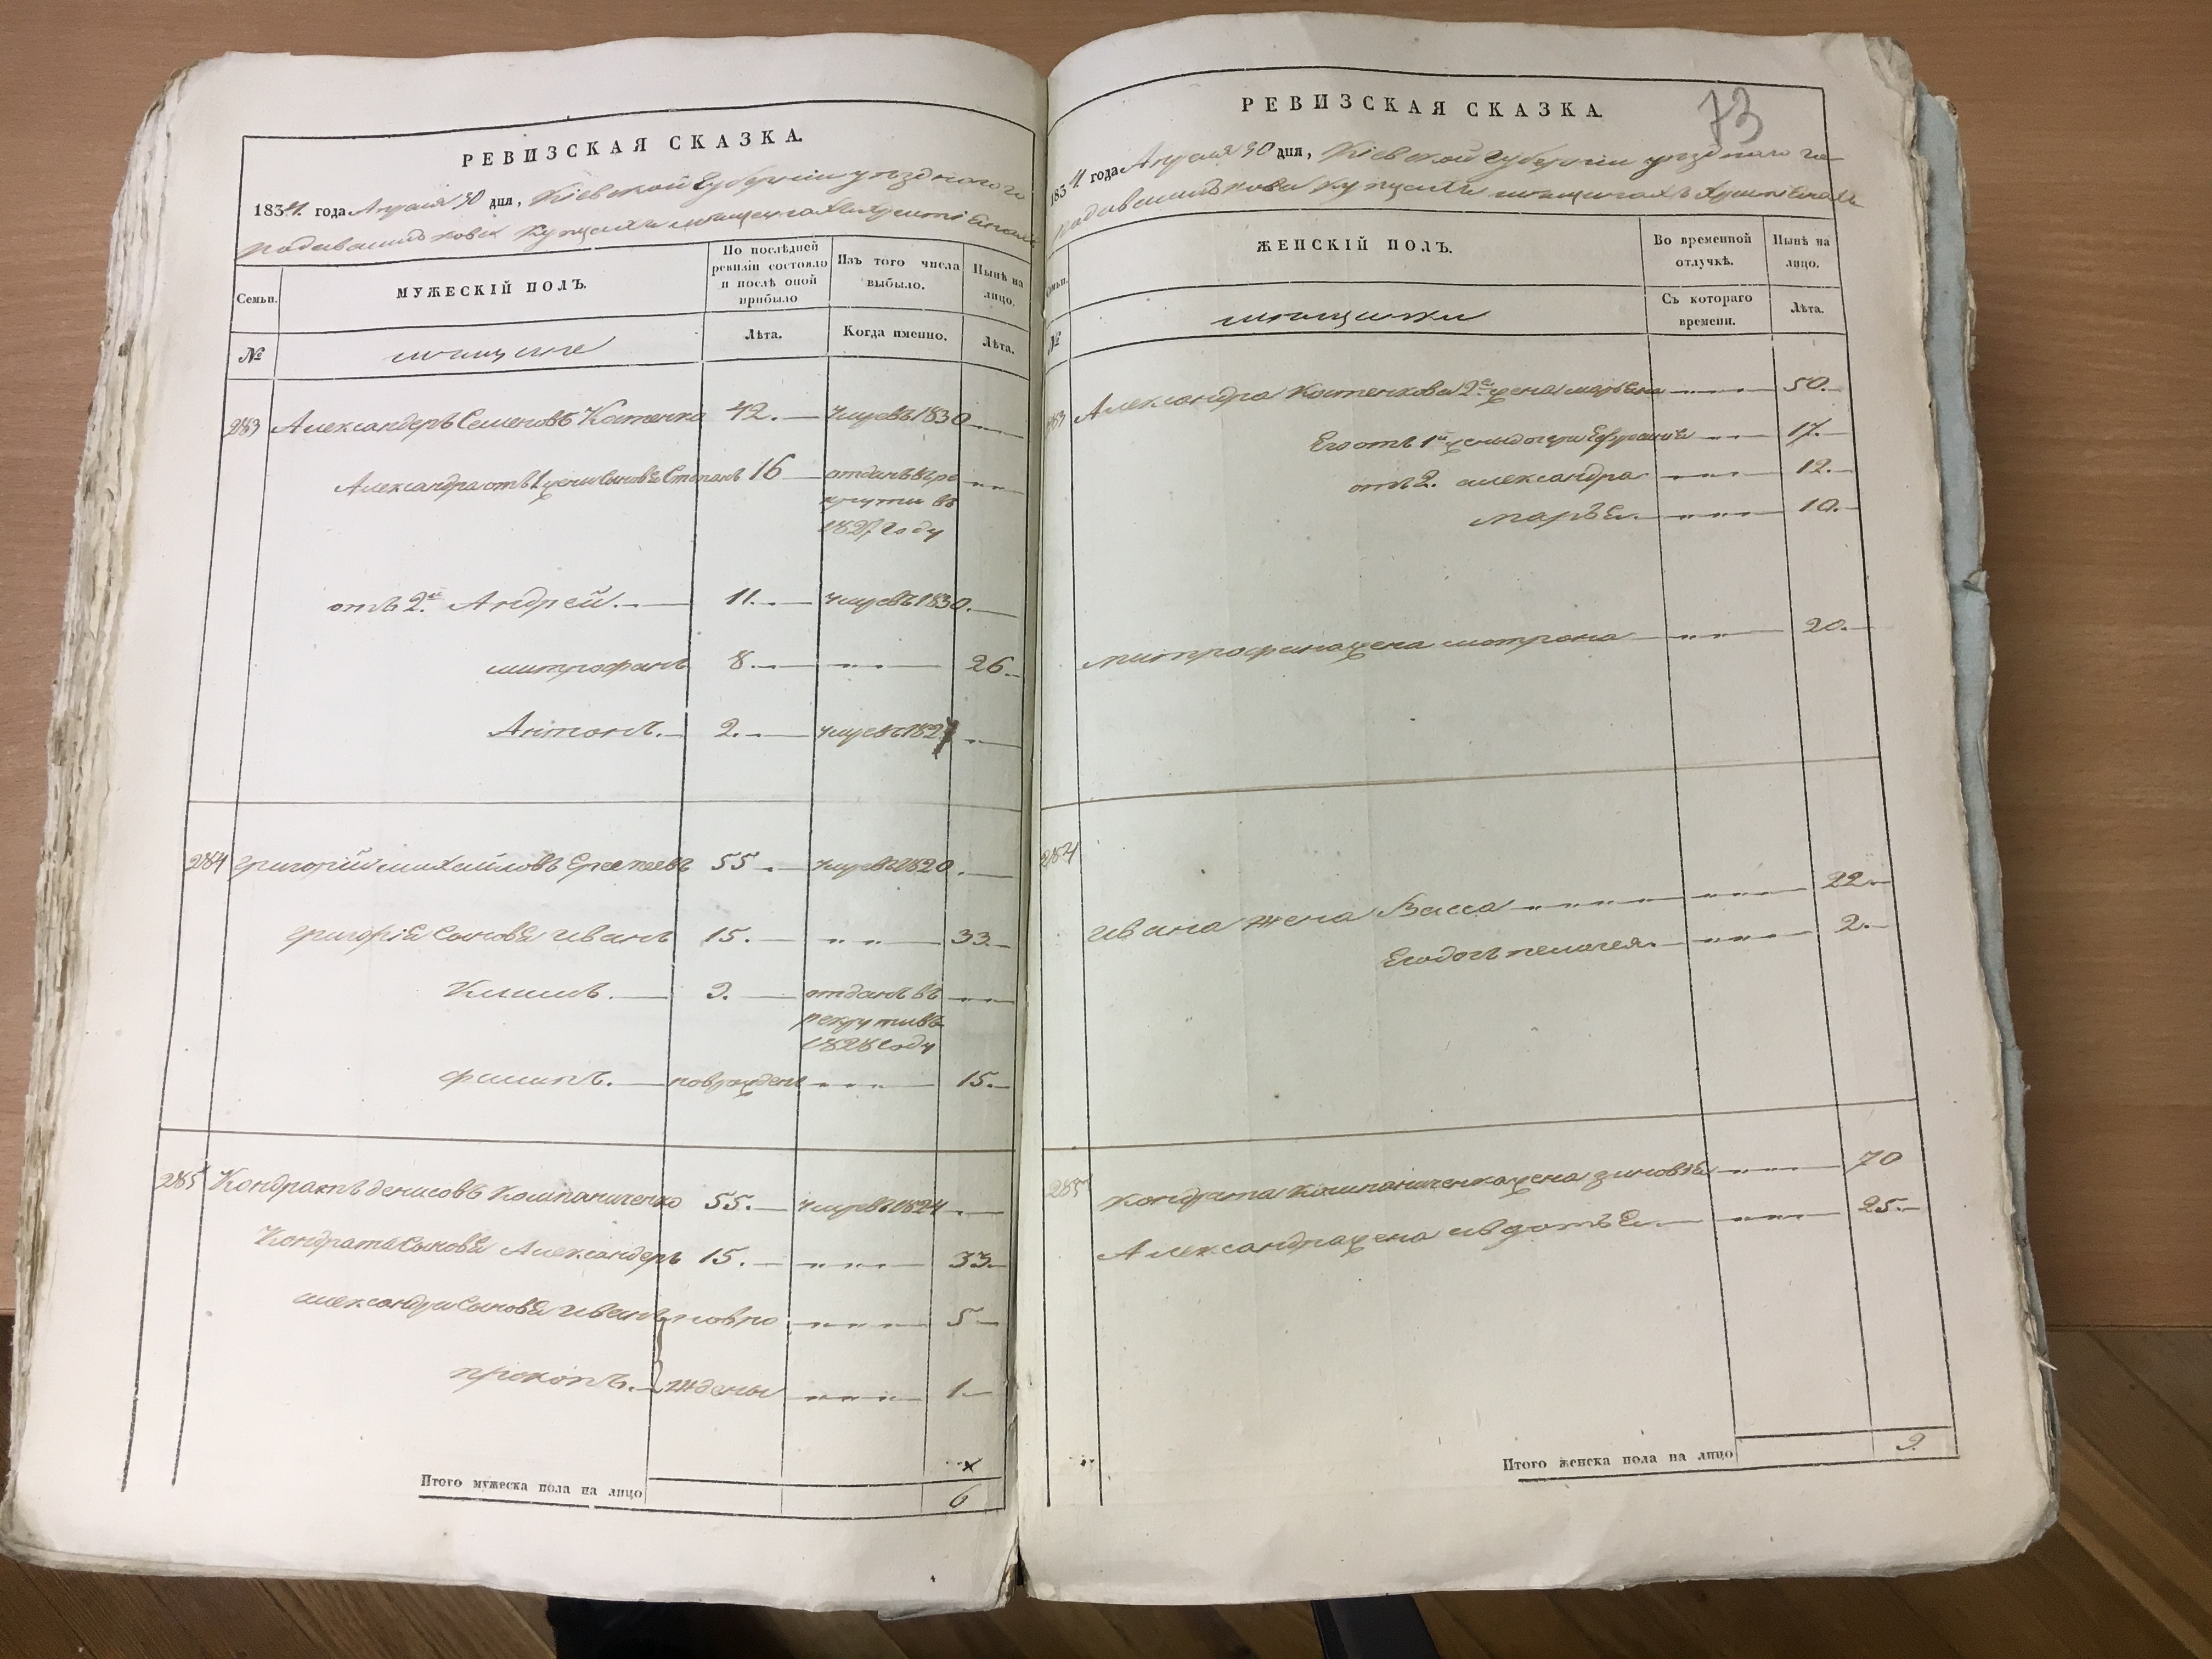 РЕВИЗСКАЯ СКАЗКА.
1834. года Апреля 30 дня, Кіевской Губерніи уезднаго го
рода василькова Купцахъ мещанахъ и христіанахъ
Семьи.
МУЖЕСКІЙ ПОЛЪ.
По послѣдней
ревизіи состояло
и послѣ оной
прибыло
Изъ того числа
выбыло.
Нынѣ на
лицо.
№
мещане
Лѣта.
Когда именно.
Лѣта.
283 Александеръ Семеновъ Костенко 42. умре въ 1830
Александра отъ 1 жены сыновья Степанъ 16 отданъ въ ре
круты въ
1827 году
отъ 2й Андрей. 11. умре въ 1830.
митрофанъ 8. 26.
Антонъ. 2. умре въ 1827
284 григорій михайловъ 55 умре въ 1820.
григорія сыновья иванъ 15. 33
Климъ. 9. отданъ въ
рекруты въ
1828 году
филипъ. новорожденъ 15.
285 Кондратъ денисовъ Компаниченко 55. умре въ 1824
Кондрата сыновья Александеръ 15. 33
александра сыновья иванъ новоро 5
прокопъ. жденны 1.
Итого мужеска пола на лицо 6
73
РЕВИЗСКАЯ СКАЗКА.
1834 года Апреля 30 дня, Кіевской Губерніи уезднаго го
рода василькова Купцахъ мещанахъ и христіанахъ
Семьи.
ЖЕНСКІЙ ПОЛЪ.
Во временной
отлучкѣ.
Нынѣ на
лицо.
№
мещанки
Съ котораго
времени.
Лѣта.
283 Александра Костенкова 2я жена марьяна 50.
Его отъ 1й жены дочери Ефросинія 17.
отъ 2. александра 12.
марья. 10.
митрофана жена мотрона 20.
284
ивана жена Васса 22
Его дочь пелагея. 2.
285 кондрата компаниченка жена зиновія 70
Александра жена авдотья 25.
Итого женска пола на лицо 9.